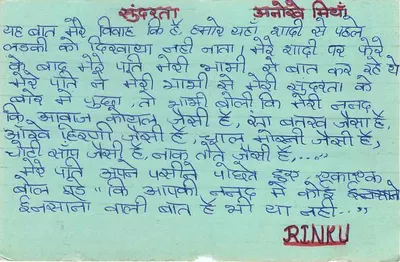 सुंदरता अनोखे मियाँ
यह बात मेरे विवाह कि है, हमारे यहाँ शादी से पहले
लडकी को दिखाया नही जाता। मेरे शादी पर फेरे
के बाद मेरे पति मेरी भाभी से बात कर रहे थे
मेरे पति ने मेरी भाभी से मेरी सुंदरता के
बारे में पुछा, तो भाभी बोली कि मेरी ननद
कि आवाज कोयल जैसी है, रंग बतख जैसा है,
आँखे हिरणी जैसी है, चाल मोरनी जैसी है,
चोटी साँप जैसी है, नाक तोते जैसी है,....."
मेरे पति अपने पसीने पोछते हुए एकाएक
बोल पडे " कि आपकी ननद में कोई
ईनसानो वाली बात है भी या नही..."
RINKU